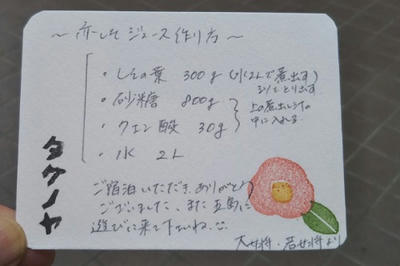 ～赤しそジュース作り方～
・しその葉 300g (水2Lで煮出す)
とり出す
・砂糖 800g
・クエン酸 30g
上の煮出し汁の
中に入れる
・水 2L
ご宿泊いただき、ありがとう
ございました。また五島に
遊びに来て下さいね。
大女将・若女将より
タケノヤ